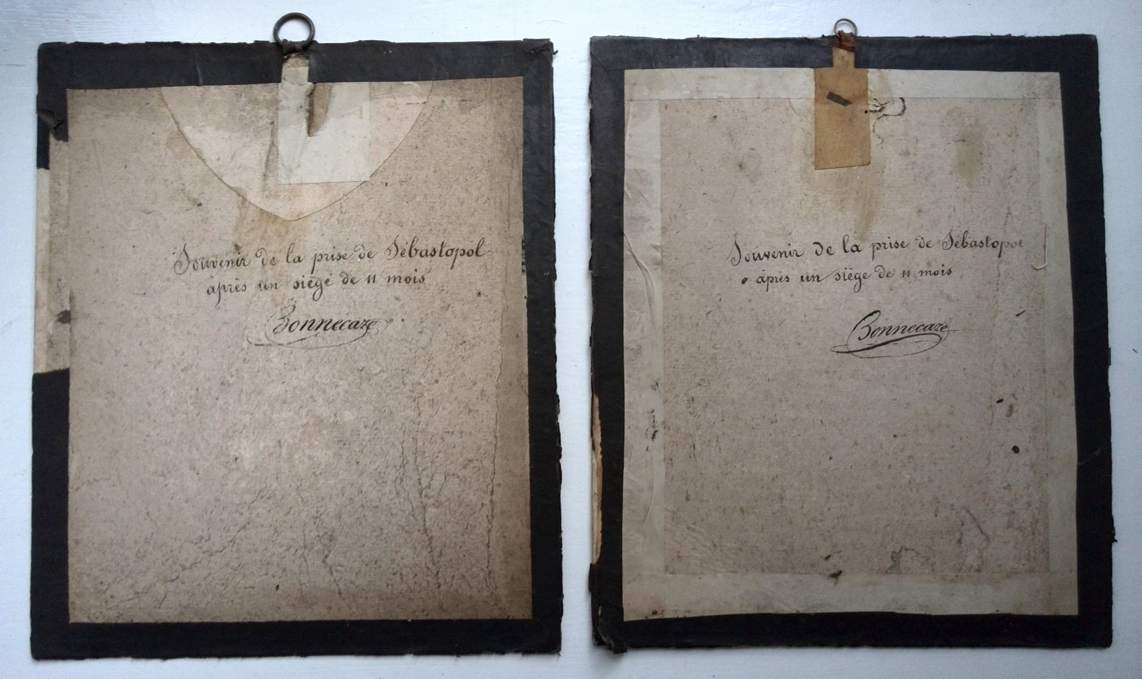 Souvenir de la prise de Sébastopol
après un siège de 11 mois
Bonnecaze
Souvenir de la prise de Sébastopol
après un siège de 11 mois
Bonnecaze